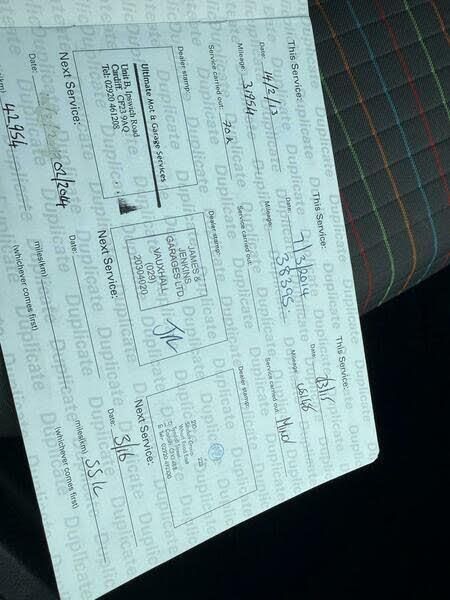 This Service:
Date: 14/2/13
Mileage: 31954
Service carried out: 70k
Dealer stamp:
Ultimate MoT & Garage Services
Unit B, Ipswich Road
Cardiff CF23 9AQ
Tel: 02920 461208
Next Service:
Date: 02/2014
42954
(whichever comes first)
This Service:
Date: 7/3/2014
Mileage: 38395.
Service carried out:
Dealer stamp:
JAMES &
JENKINS
GARAGES LTD
VAUXHALL
(029)
20304020
Next Service:
Date:
miles(km)
(whichever comes first)
This Service:
Date: 13/15
Mileage:
Service carried out:
Dealer stamp:
Next Service:
Date: 3/16
miles(km) 55K
(whichever comes first)
Duplicate